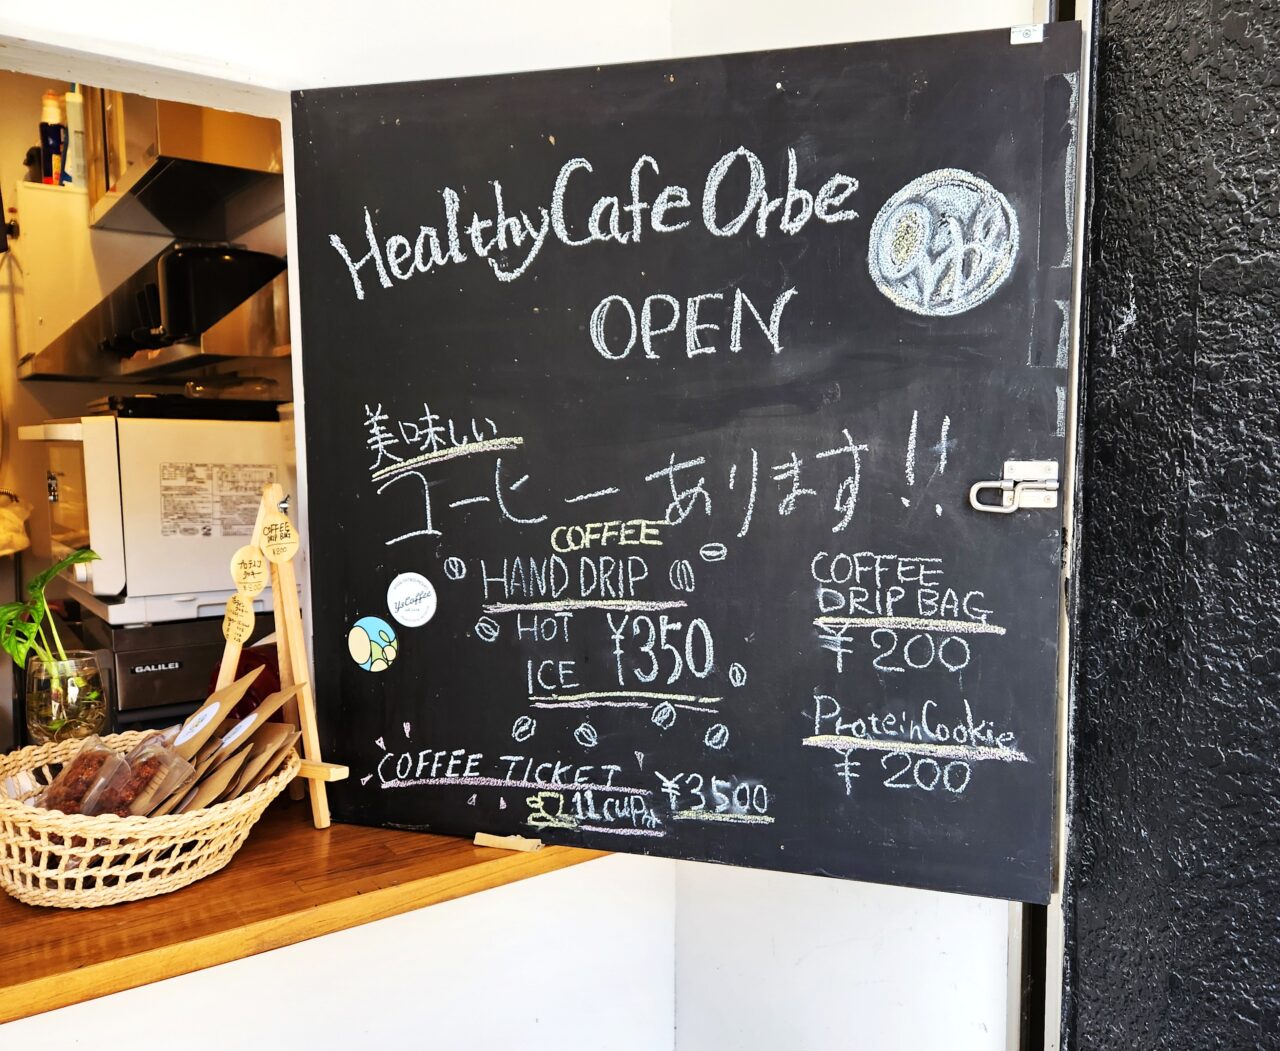 Healthy Cafe Orbe
OPEN
美味しい
コーヒーあります!!
COFFEE
HAND DRIP
HOT
ICE
¥350
COFFEE TICKET
11cups
¥3500
COFFEE
DRIP BAG
¥200
Protein Cookie
¥200
Y's Coffee
GALILEI
COFFEE
DRIP BAG
¥200